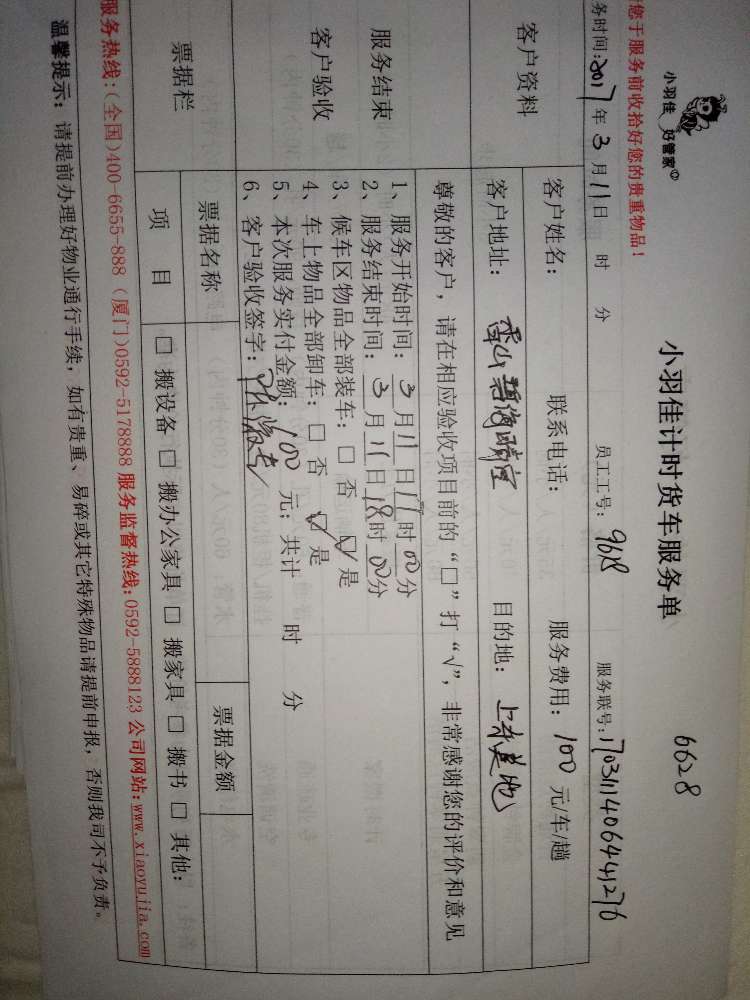 小羽佳 好管家
小羽佳计时货车服务单
6628
您于服务前收拾好您的贵重物品！
务时间：2017年3月11日 时 分 员工工号：9618 服务联号：1703111406441276
客户资料
客户姓名： 联系电话： 服务费用：100元/车/趟
客户地址： 目的地：
尊敬的客户，请在相应验收项目前的“□”打“√”，非常感谢您的评价和意见
服务结束
客户验收
1、服务开始时间：3月11日17时00分
2、服务结束时间：3月11日18时00分
3、候车区物品全部装车：□ 否 ☑ 是
4、车上物品全部卸车：□ 否 ☑ 是
5、本次服务实付金额：100元；共计 时 分
6、客户验收签字：
票据栏
票据名称 票据金额
项 目 □ 搬设备 □ 搬办公家具 □ 搬家具 □ 搬书 □ 其他：
服务热线：(全国)400-6655-888 (厦门)0592-5178888 服务监督热线：0592-5888123 公司网站：www.xiaoyujia.com
温馨提示：请提前办理好物业通行手续，如有贵重、易碎或其它特殊物品请提前申报，否则我司不予负责。